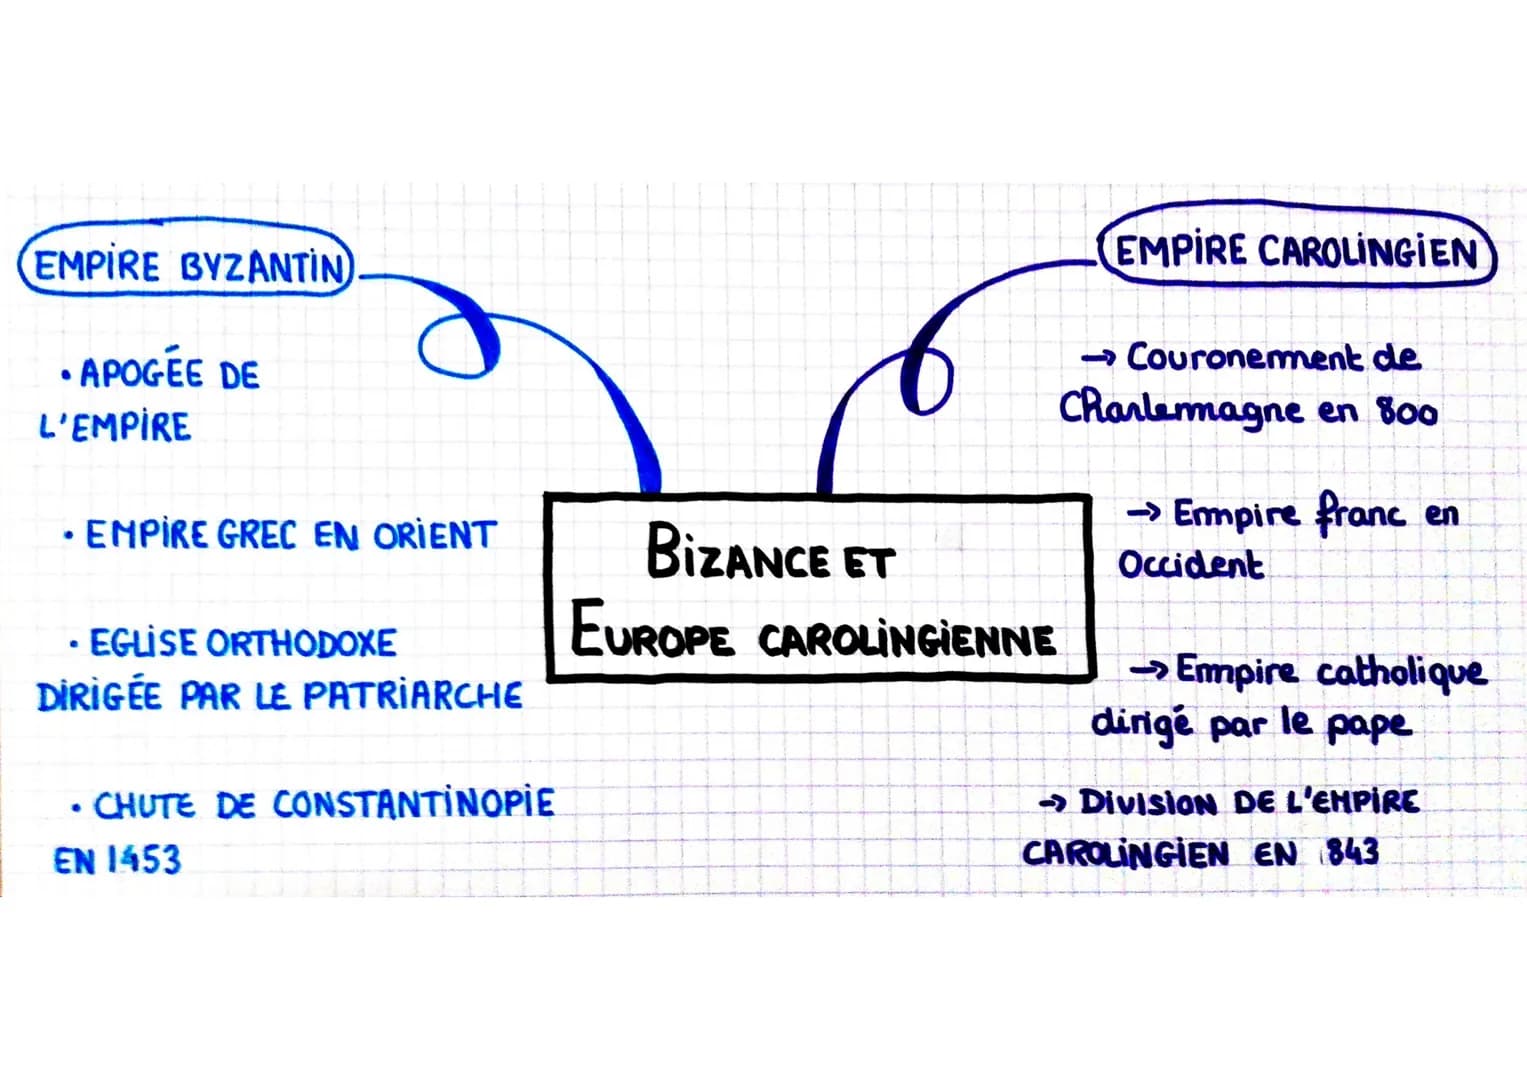 EMPIRE BYZANTIN
• APOGÉE DE
L'EMPIRE
• EMPIRE GREC EN ORIENT
• EGLISE ORTHODOXE
DIRIGÉE PAR LE PATRIARCHE
• CHUTE DE CONSTANTINOPIE
EN 1453
BIZANCE ET
EUROPE CAROLINGIENNE
EMPIRE CAROLINGIEN
→ Couronement de
Charlemagne en 800
→ Empire franc en
Occident
→ Empire catholique
dirigé par le pape
→ DIVISION DE L'EMPIRE
CAROLINGIEN EN 843